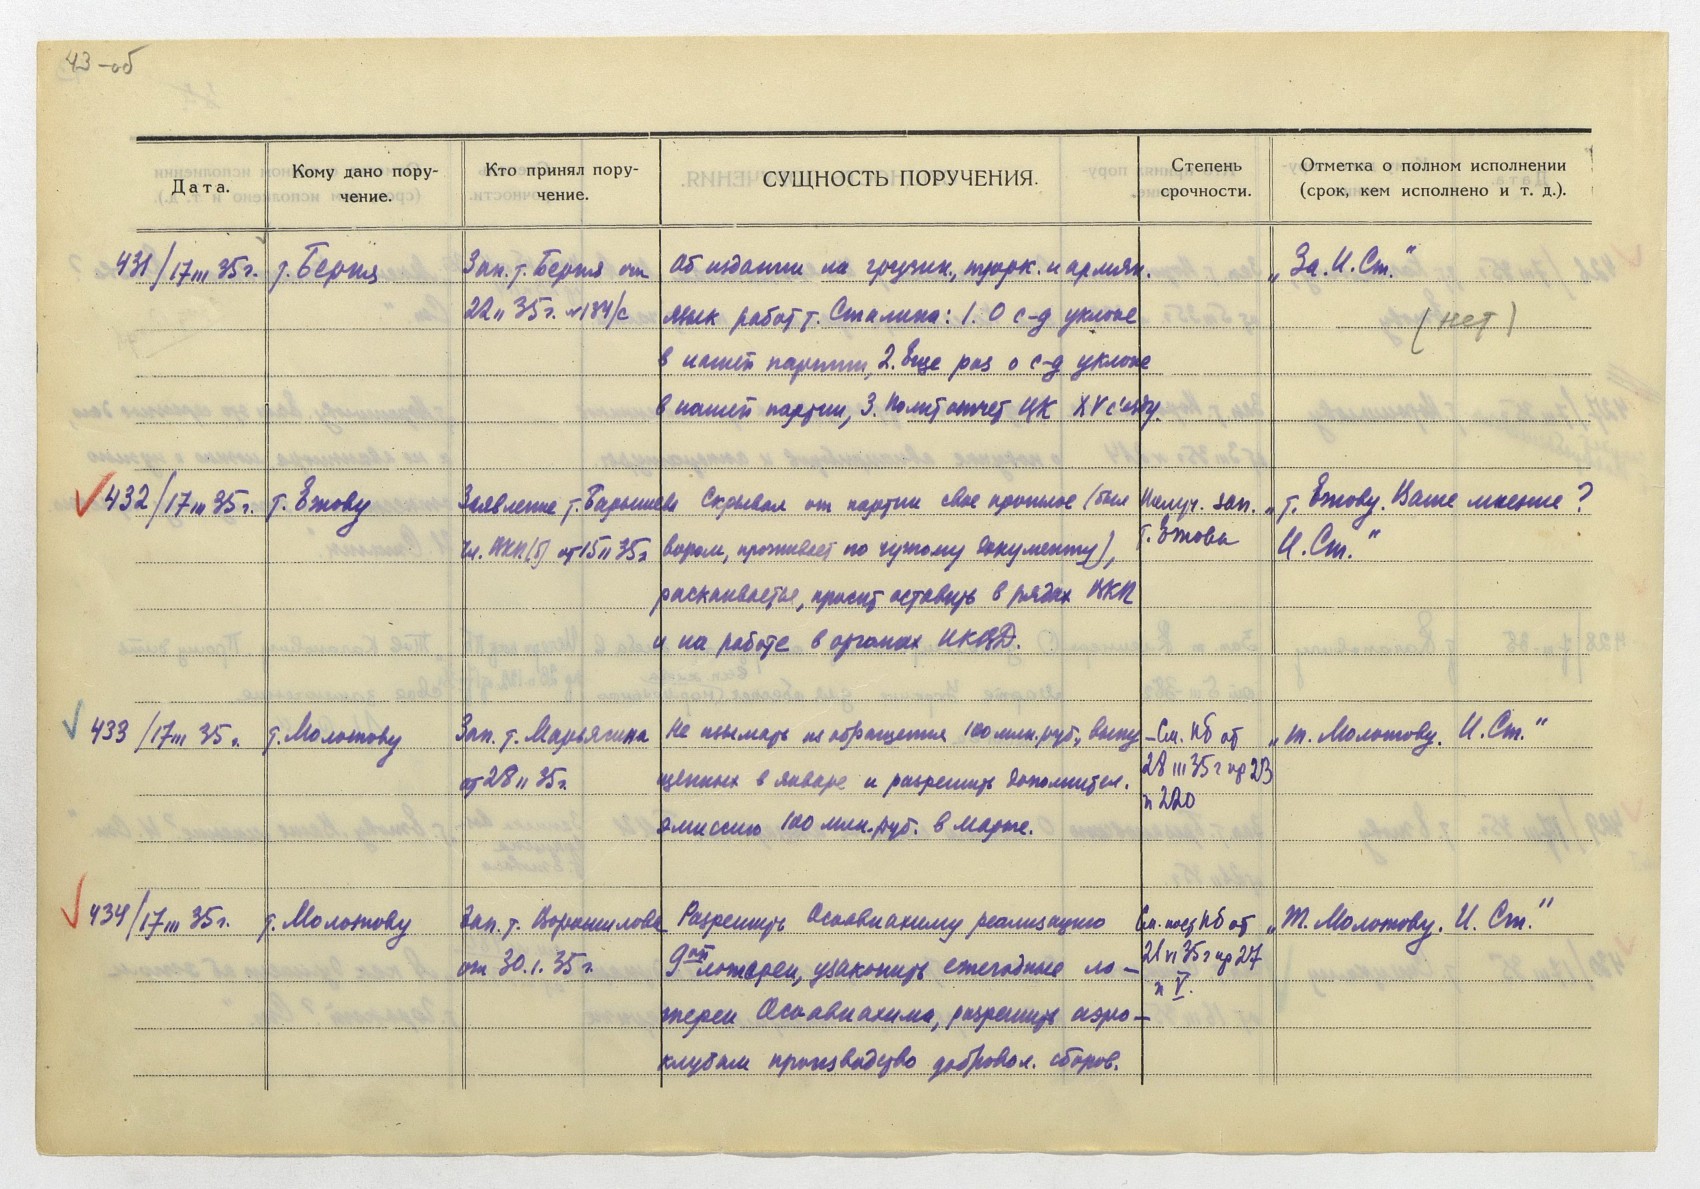 43-об
Дата.
Кому дано пору-
чение.
Кто принял пору-
чение.
СУЩНОСТЬ ПОРУЧЕНИЯ.
Степень
срочности.
Отметка о полном исполнении
(срок, кем исполнено и т. д.).
431/17 III 35 г.
т. Берия
Зап. т. Берия от
22 II 35 г. №184/с
Об издании на грузин., тюрк. и армян.
язык работ т. Сталина: 1. О с-д уклоне
в нашей партии, 2. Еще раз о с-д уклоне
в нашей партии, 3. Политотчет ЦК XV с'езду.
„За. И. Ст."
(нет)
432/17 III 35 г.
т. Ежову
Заявление т. Барышева
чл. ВКП(б) от 15 II 35 г
Скрывал от партии свое прошлое (был
вором, проживает по чужому документу),
раскаивается, просит оставить в рядах ВКП
и на работе в органах НКВД.
Получ. зап.
т. Ежова
„т. Ежову. Ваше мнение?
И. Ст."
433/17 III 35 г.
т. Молотову
Зап. т. Марьясина
от 28 II 35 г.
Не изымать из обращения 100 млн. руб., выпу
щенных в январе и разрешить дополнител.
эмиссию 100 млн. руб. в марте.
-См. ПБ от
28 III 35 г пр 23
п 220
„т. Молотову. И. Ст."
434/17 III 35 г.
т. Молотову
Зап. т. Ворошилова
от 30.I.35 г.
Разрешить Осоавиахиму реализацию
9ой лотереи, узаконить ежегодные ло-
тереи Осоавиахима, разрешить аэро-
клубам производство добровол. сборов.
См. пост ПБ от
21 VI 35 г пр 27
п V.
„Т. Молотову. И. Ст."